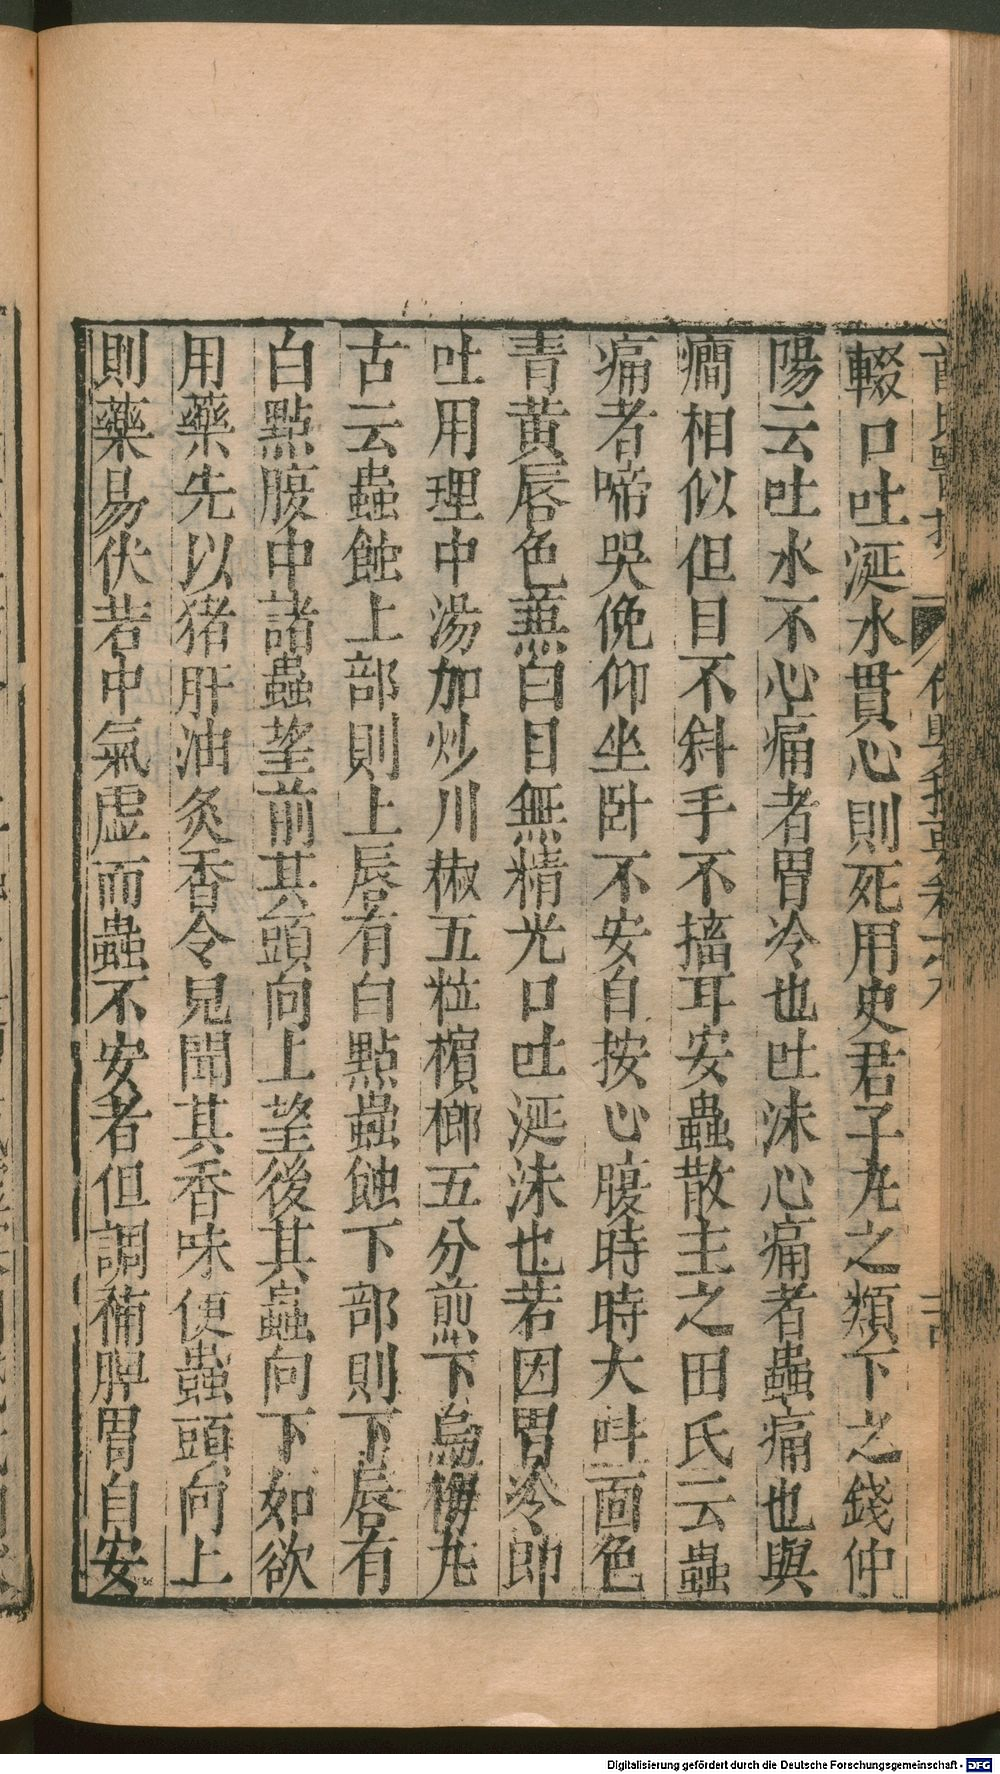 輟口吐涎水貫心則死用史君子丸之類下之錢仲
陽云吐水不心痛者胃冷也吐沫心痛者蟲痛也與
癇相似但目不斜手不搐耳安蟲散主之田氏云蟲
痛者啼哭俛仰坐卧不安自按心腹時時大呌面色
青黃唇色兼白目無精光口吐涎沫也若因胃冷即
吐用理中湯加炒川椒五粒檳榔五分煎下烏梅丸
古云蟲蝕上部則上唇有白點蟲蝕下部則下唇有
白點腹中諸蟲望前其頭向上望後其蟲向下如欲
用藥先以猪肝油灸香令見聞其香味便蟲頭向上
則藥易伏若中氣虛而蟲不安者但調補脾胃自安
Digitalisierung gefördert durch die Deutsche Forschungsgemeinschaft - DFG